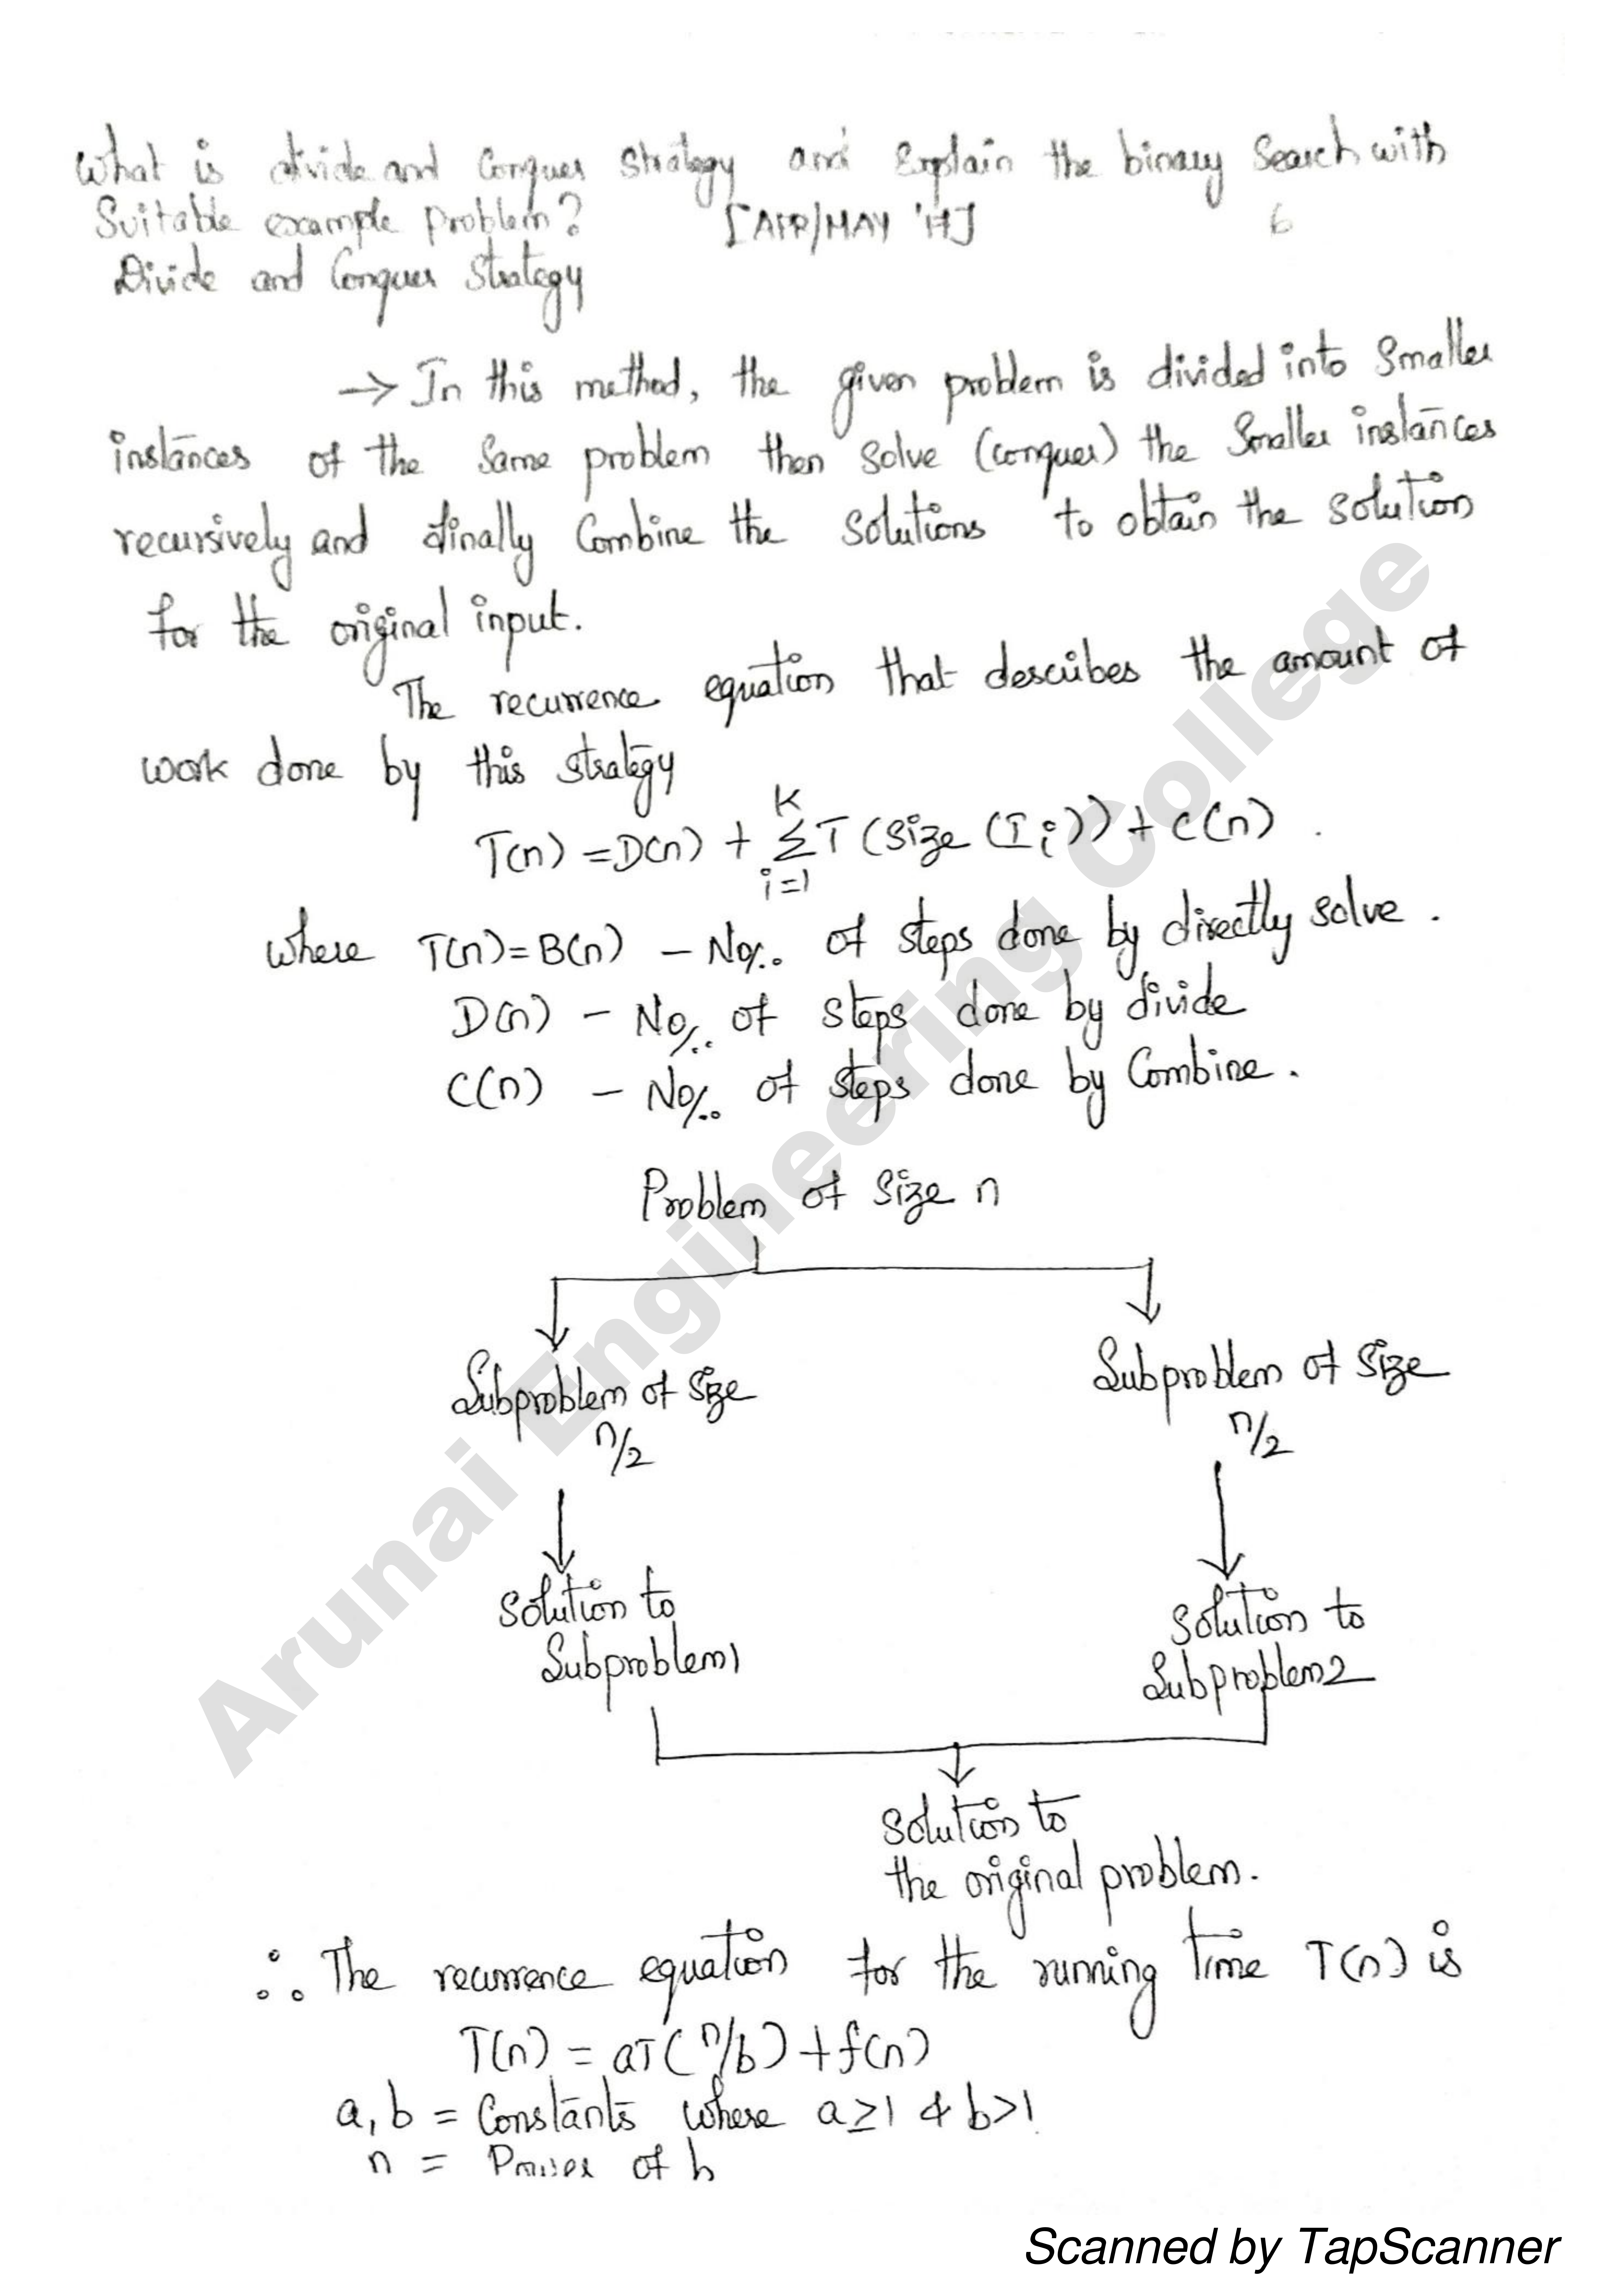 What is divide and Conquer Strategy and Explain the binary Search with
Suitable example problem? [APR/MAY '17]
6
Divide and Conquer Strategy
→ In this method, the given problem is divided into Smaller
instances of the Same problem then Solve (conquer) the Smaller instances
recursively and finally Combine the Solutions to obtain the solution
for the original input.
The recurrence equation that describes the amount of
work done by this strategy
T(n) = D(n) + K Σ i=1 T (size (Ii)) + C(n).
where T(n) = B(n) - No/.. of steps done by directly solve.
D(n) - No/.. of steps done by divide
C(n) - No/.. of steps done by Combine.
Problem of size n
Subproblem of size
n/2
Subproblem of size
n/2
Solution to
Subproblem1
Solution to
Subproblem2
Solution to
the original problem.
∴ The recurrence equation for the running time T(n) is
T(n) = aT(n/b) + f(n)
a, b = Constants where a≥1 & b>1
n = Power of b
Arunai Engineering College
Scanned by TapScanner